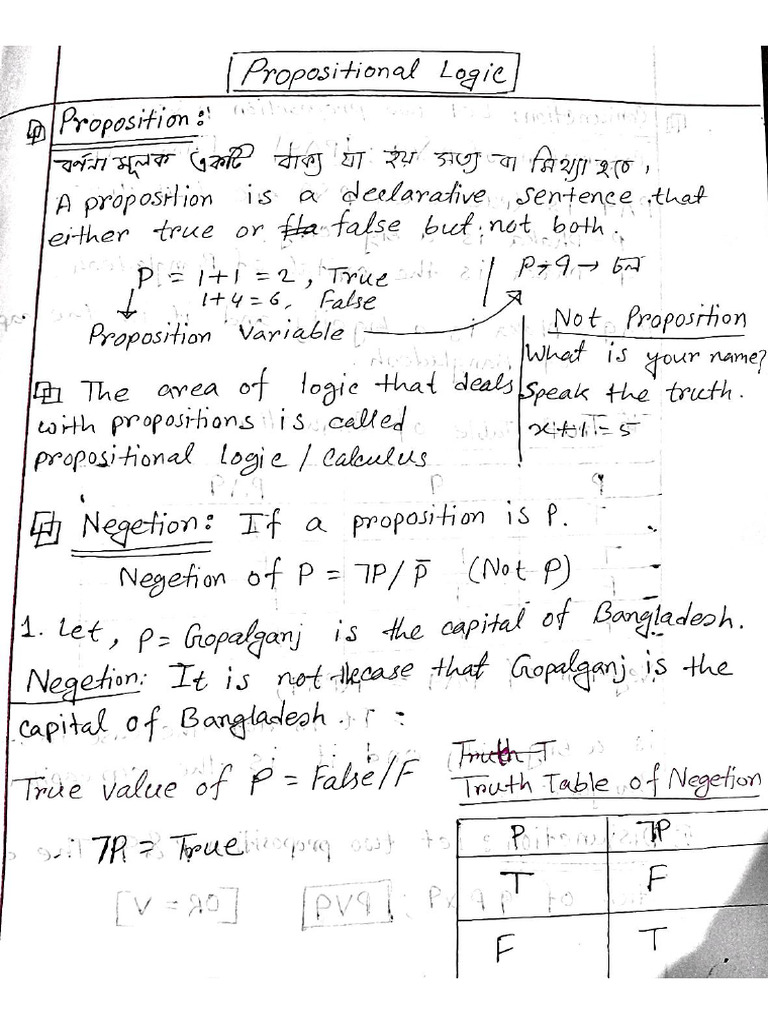 Propositional Logic
Proposition:
বর্ণনা মূলক একটি বাক্য যা হয় সত্য বা মিথ্যা হবে,
A proposition is a declarative sentence that
either true or false but not both.
P = 1+1 = 2, True
1+4=6, False
Proposition Variable
P, q → চল
Not Proposition
What is your name?
Speak the truth.
x+1=5
The area of logic that deals
with propositions is called
propositional logic / calculus
Negetion: If a proposition is P.
Negetion of P = ¬P/ p̄ (Not P)
1. Let, P= Gopalganj is the capital of Bangladesh.
Negetion: It is not the case that Gopalganj is the
capital of Bangladesh.
True value of P = False/F
¬P = True
Truth T
Truth Table of Negetion
P ¬P
T F
F T